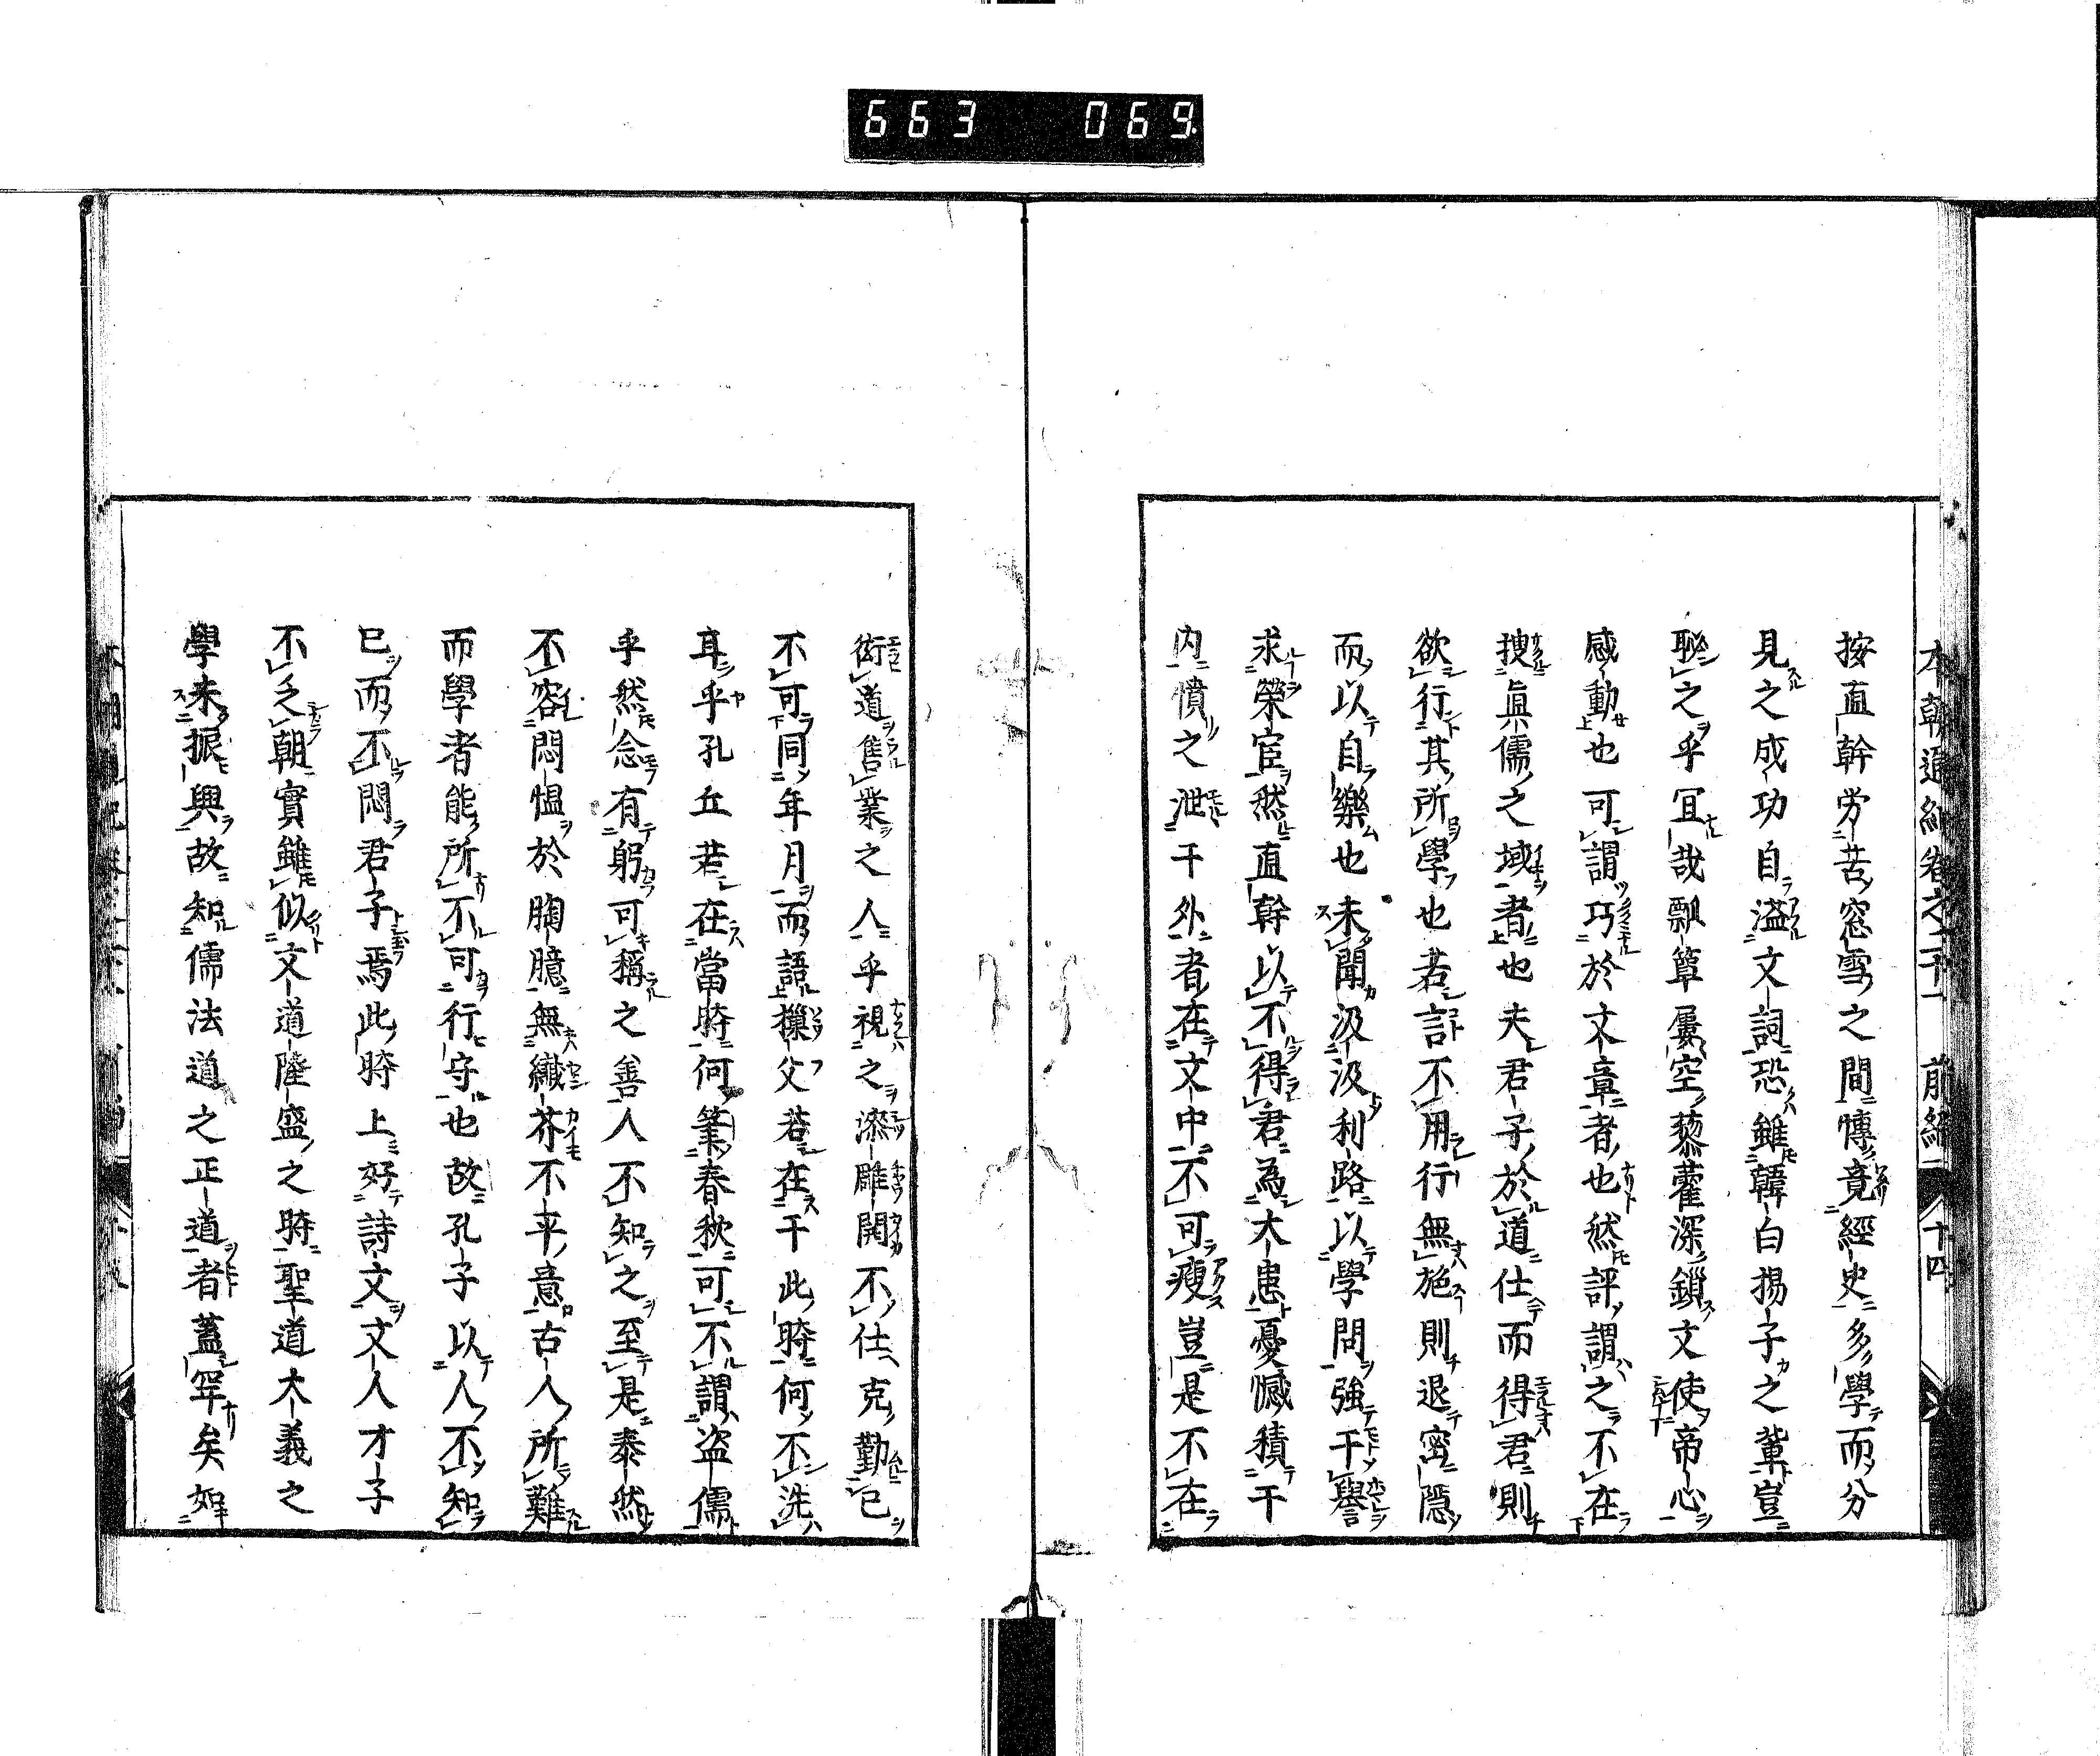 663 069
本朝通紀卷之二十一 前編 十四
按直幹労苦窓雪之間慱竟經史多學而分
見之成功自溢文詞恐雖韓白揚子之輩豈
恥之乎冝哉瓢簞屢空藜藿深鎖文使帝心
感動也可謂巧於文章者也然評謂之不在
捜眞儒之域者也夫君子於道仕而得君則
欲行其所學也若言不用行無施則退密隠
而以自樂也未聞汲汲利路以學問強干譽
求榮宦然直幹以不得君為大患憂慽積于
内憤之泄于外者在文中不可瘦豈是不在
衒道售業之人乎視之漆雕開不仕克勤已
不可同年月而語摷父若在于此時何不洗
耳乎孔丘若在當時何筆春秋可不謂盗儒
乎然念有躬可稱之善人不知之至是泰然
不容悶愠於胸臆無纎芥不平意古人所難
而學者能所不可行守也故孔子以人不知
已而不悶君子焉此時上好詩文文人才子
不乏朝實雖似文道隆盛之時聖道大義之
學未振興故知儒法道之正道者蓋罕矣如